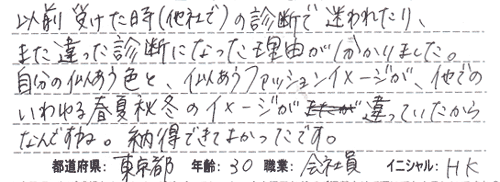 以前受けた時(他社で)の診断で迷われたり、
また違った診断になった理由が分かりました。
自分の似あう色と、似あうファッションイメージが、他での
いわゆる春夏秋冬のイメージが違っていたから
なんですね。納得できてよかったです。
都道府県：東京都 年齢：30 職業：会社員 イニシャル：HK